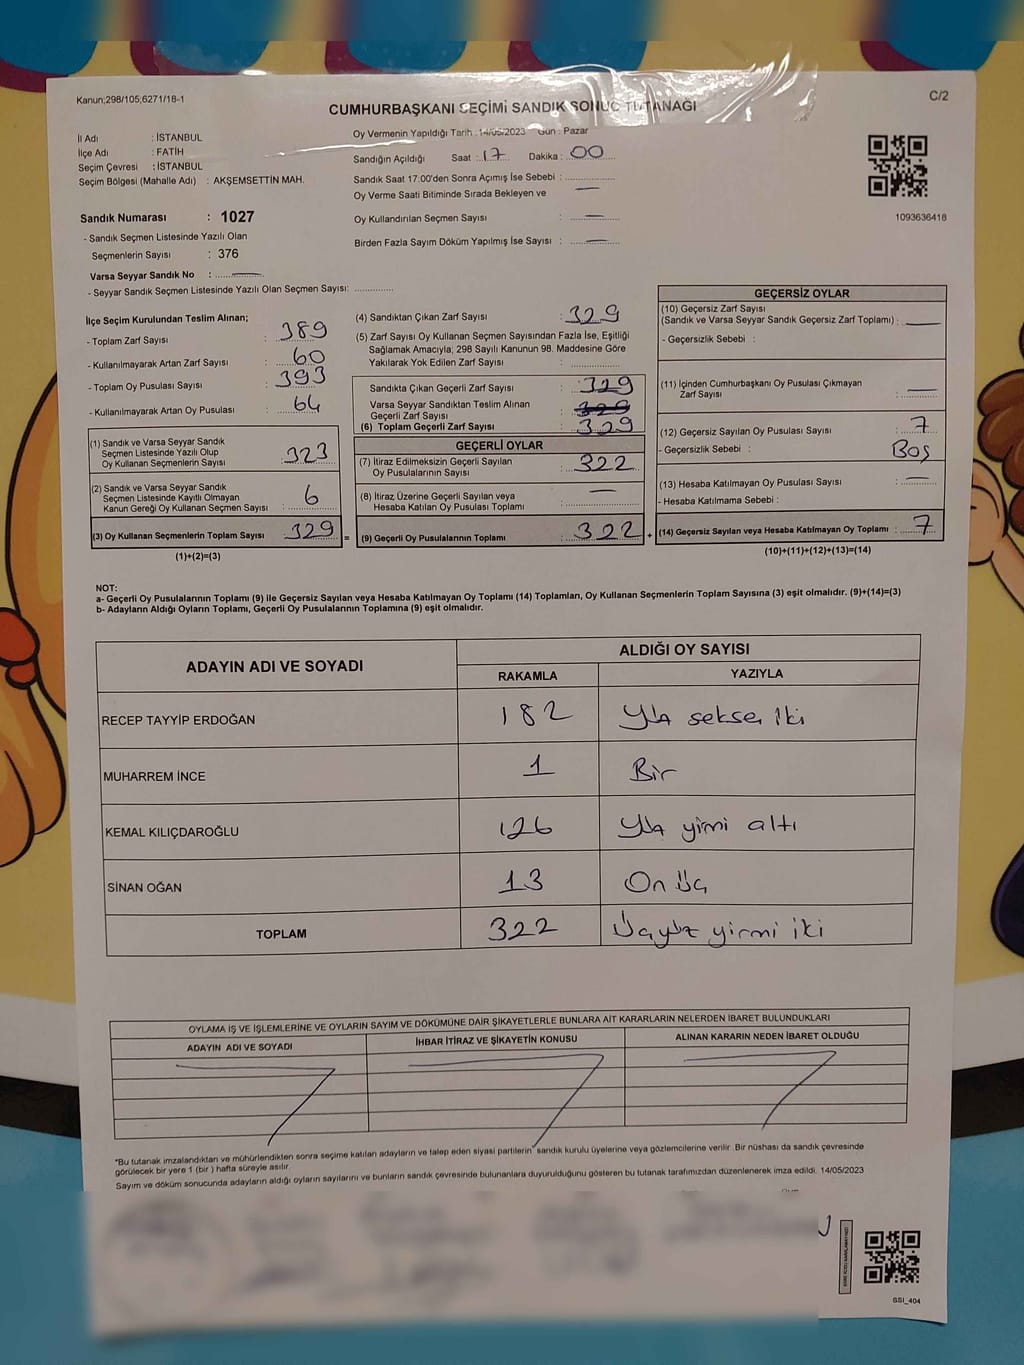 Kanun;298/105;6271/18-1
C/2
CUMHURBAŞKANI SEÇİMİ SANDIK SONUÇ TUTANAĞI
İl Adı : İSTANBUL
İlçe Adı : FATİH
Seçim Çevresi : İSTANBUL
Seçim Bölgesi (Mahalle Adı) : AKŞEMSETTİN MAH.
Oy Vermenin Yapıldığı Tarih : 14/05/2023 Gün : Pazar
Sandığın Açıldığı Saat : 17 Dakika : 00
Sandık Saat 17:00'den Sonra Açımış İse Sebebi :
Oy Verme Saati Bitiminde Sırada Bekleyen ve
Oy Kullandırılan Seçmen Sayısı : —
Birden Fazla Sayım Döküm Yapılmış İse Sayısı : —
1093636418
Sandık Numarası : 1027
- Sandık Seçmen Listesinde Yazılı Olan
Seçmenlerin Sayısı : 376
Varsa Seyyar Sandık No : —
- Seyyar Sandık Seçmen Listesinde Yazılı Olan Seçmen Sayısı:
İlçe Seçim Kurulundan Teslim Alınan;
- Toplam Zarf Sayısı : 389
- Kullanılmayarak Artan Zarf Sayısı : 60
- Toplam Oy Pusulası Sayısı : 393
- Kullanılmayarak Artan Oy Pusulası : 64
(1) Sandık ve Varsa Seyyar Sandık
Seçmen Listesinde Yazılı Olup
Oy Kullanan Seçmenlerin Sayısı : 323
(2) Sandık ve Varsa Seyyar Sandık
Seçmen Listesinde Kayıtlı Olmayan
Kanun Gereği Oy Kullanan Seçmen Sayısı : 6
(3) Oy Kullanan Seçmenlerin Toplam Sayısı : 329 =
(1)+(2)=(3)
(4) Sandıktan Çıkan Zarf Sayısı : 329
(5) Zarf Sayısı Oy Kullanan Seçmen Sayısından Fazla İse, Eşitliği
Sağlamak Amacıyla; 298 Sayılı Kanunun 98. Maddesine Göre
Yakılarak Yok Edilen Zarf Sayısı :
Sandıkta Çıkan Geçerli Zarf Sayısı : 329
Varsa Seyyar Sandıktan Teslim Alınan
Geçerli Zarf Sayısı : 329
(6) Toplam Geçerli Zarf Sayısı : 329
GEÇERLİ OYLAR
(7) İtiraz Edilmeksizin Geçerli Sayılan
Oy Pusulalarının Sayısı : 322
(8) İtiraz Üzerine Geçerli Sayılan veya
Hesaba Katılan Oy Pusulası Toplamı : —
(9) Geçerli Oy Pusulalarının Toplamı : 322 +
GEÇERSİZ OYLAR
(10) Geçersiz Zarf Sayısı
(Sandık ve Varsa Seyyar Sandık Geçersiz Zarf Toplamı) : —
- Geçersizlik Sebebi :
(11) İçinden Cumhurbaşkanı Oy Pusulası Çıkmayan
Zarf Sayısı : —
(12) Geçersiz Sayılan Oy Pusulası Sayısı : 7
- Geçersizlik Sebebi : Boş
(13) Hesaba Katılmayan Oy Pusulası Sayısı : —
- Hesaba Katılmama Sebebi :
(14) Geçersiz Sayılan veya Hesaba Katılmayan Oy Toplamı : 7
(10)+(11)+(12)+(13)=(14)
NOT:
a- Geçerli Oy Pusulalarının Toplamı (9) ile Geçersiz Sayılan veya Hesaba Katılmayan Oy Toplamı (14) Toplamları, Oy Kullanan Seçmenlerin Toplam Sayısına (3) eşit olmalıdır. (9)+(14)=(3)
b- Adayların Aldığı Oyların Toplamı, Geçerli Oy Pusulalarının Toplamına (9) eşit olmalıdır.
ADAYIN ADI VE SOYADI
ALDIĞI OY SAYISI
RAKAMLA YAZIYLA
RECEP TAYYİP ERDOĞAN 182 Yüz seksen İki
MUHARREM İNCE 1 Bir
KEMAL KILIÇDAROĞLU 126 Yüz yirmi altı
SİNAN OĞAN 13 On Üç
TOPLAM 322 Üçyüz yirmi iki
OYLAMA İŞ VE İŞLEMLERİNE VE OYLARIN SAYIM VE DÖKÜMÜNE DAİR ŞİKAYETLERLE BUNLARA AİT KARARLARIN NELERDEN İBARET BULUNDUKLARI
ADAYIN ADI VE SOYADI İHBAR İTİRAZ VE ŞİKAYETİN KONUSU ALINAN KARARIN NEDEN İBARET OLDUĞU
*Bu tutanak imzalandıktan ve mühürlendikten sonra seçime katılan adayların ve talep eden siyasi partilerin sandık kurulu üyelerine veya gözlemcilerine verilir. Bir nüshası da sandık çevresinde
görülecek bir yere 1 (bir) hafta süreyle asılır.
Sayım ve döküm sonucunda adayların aldığı oyların sayılarını ve bunların sandık çevresinde bulunanlara duyurulduğunu gösteren bu tutanak tarafımızdan düzenlenerek imza edildi. 14/05/2023
SSI_404